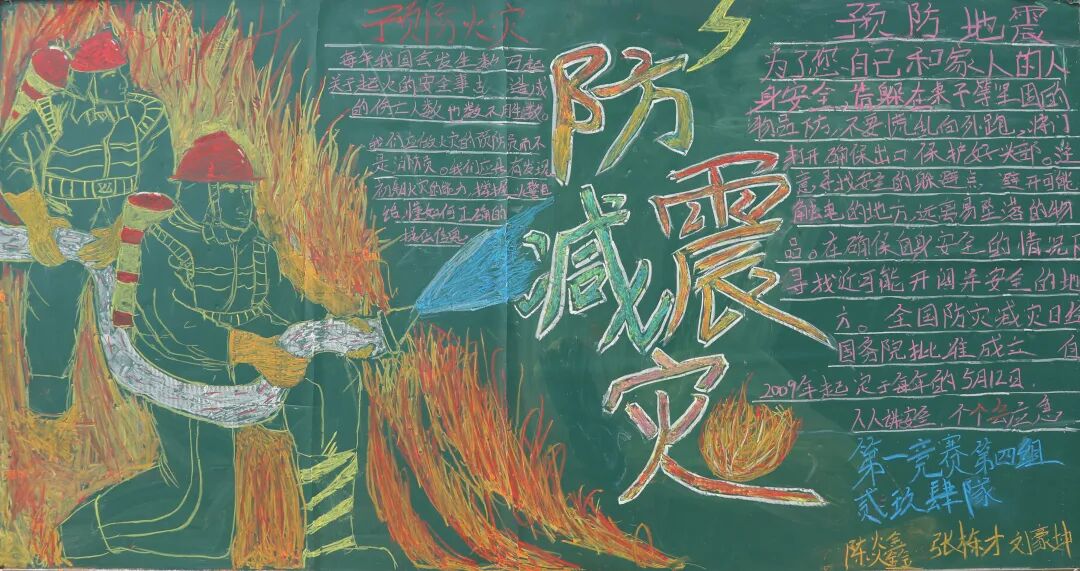 预防火灾
每年我国会发生数万起
关于起火的安全事故,造成
的伤亡人数也数不胜数。
我们应做火灾的预防员而不
是消防员。我们应具有发现
初起火灾的能力
懂如何正确的
防震
减灾
预防地震
为了您自己和家人的人
身安全,请躲在桌下等坚固的
物品防,不要慌乱向外跑,将门
打开确保出口保护好头部。注
意寻找安全的躲避点,避开可能
触电的地方,远离易坠落的物
品。在确保自身安全的情况下
寻找近可能开阔并安全的地
方。全国防灾减灾日经
国务院批准成立 自
2009年起定于每年的5月12日.
人人讲安全 个个会应急
第一竞赛第四组
贰玖肆隊
陈燚鑫 张栋才 刘豪坤